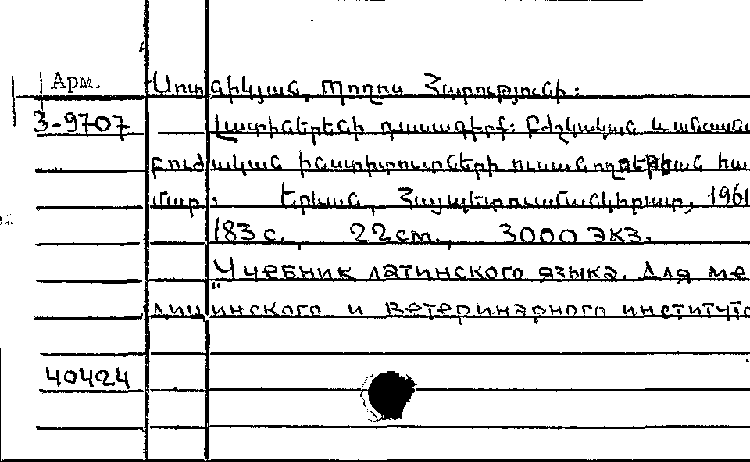 Арм.
Սոտնիկյան, Պողոս Հարությունի:
3-9707 Լատիներենի դասագիրք: Բժշկական և անասնա
բուժական ինստիտուտների ուսանողության հա
մար: Երևան, Հայպետուսմանկհրատ, 1961
183 с., 22 cm., 3000 экз.
"Учебник латинского языка. Для ме
дицинского и ветеринарного институто
40424